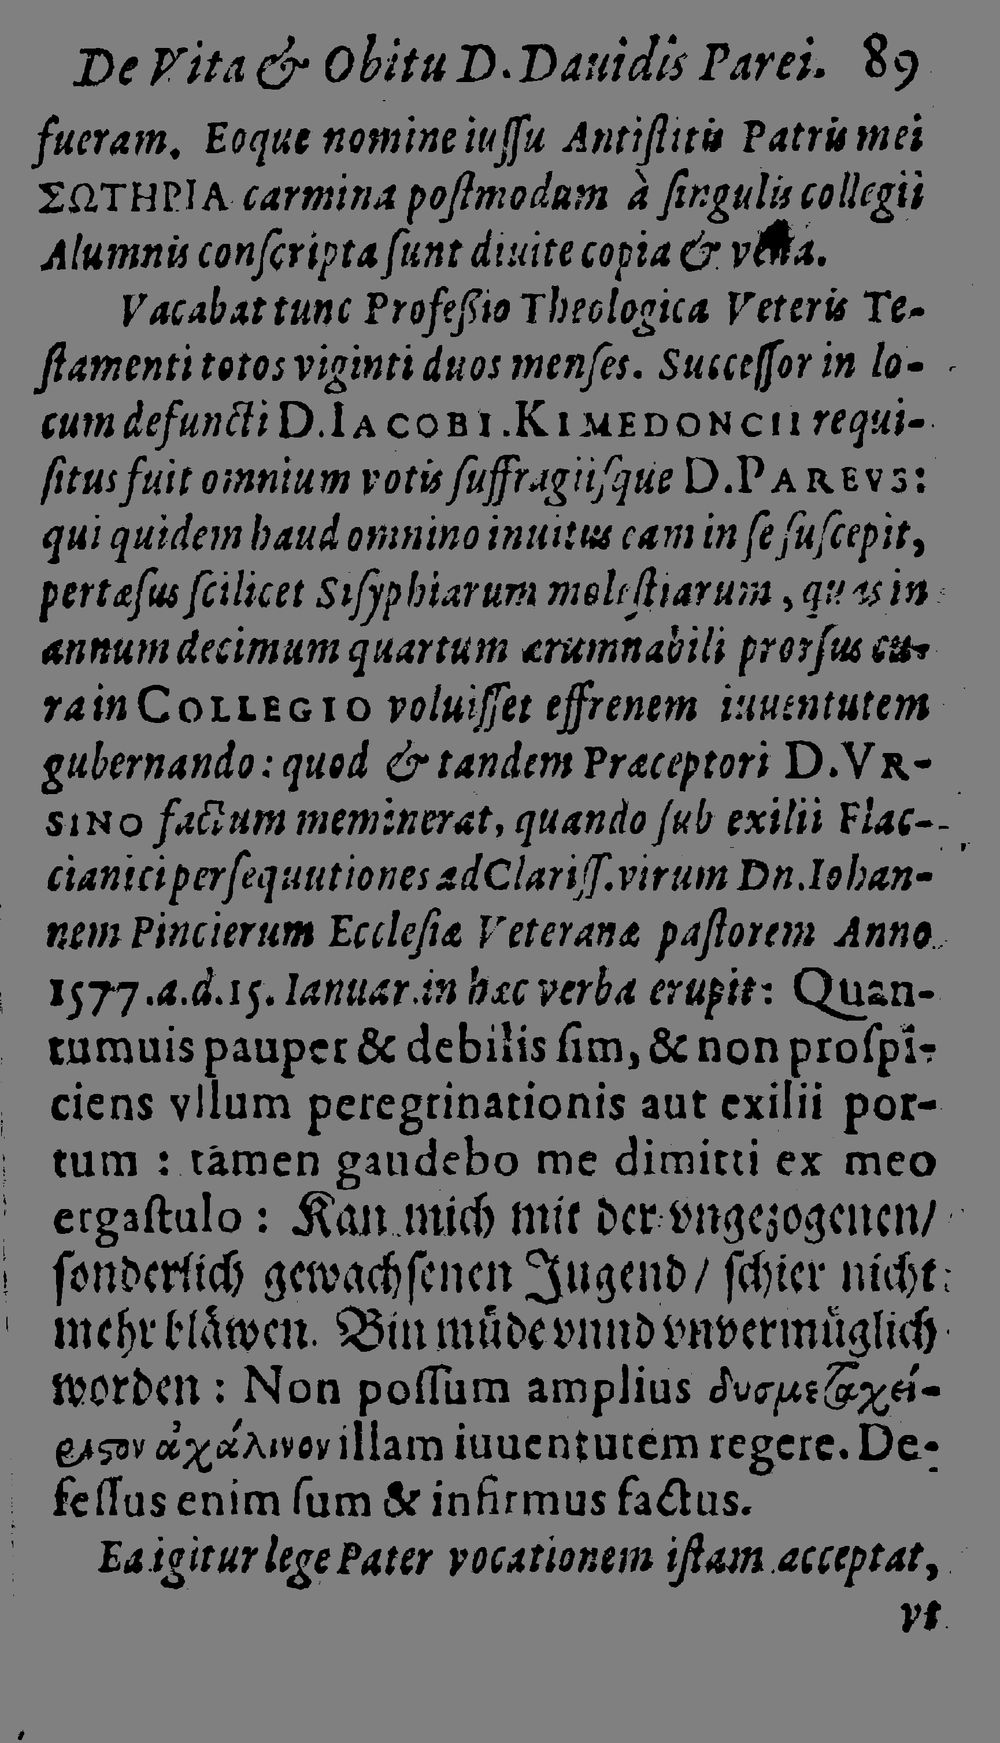 De Vita & Obitu D. Dauidis Parei. 89
fueram. Eoque nomine iuſſu Antiſtitis Patris mei
ΣΩΤΗΡΙΑ carmina poſtmodum à ſingulis collegii
Alumnis conſcripta ſunt diuite copia & vena.
Vacabat tunc Profeßio Theologica Veteris Te-
ſtamenti totos viginti duos menſes. Succeſſor in lo-
cum defuncti D. IACOBI. KIMEDONCII requi-
ſitus fuit omnium votis ſuffragiiſque D. PAREVS:
qui quidem haud omnino inuitus eam in ſe ſuſcepit,
pertæſus ſcilicet Siſyphiarum moleſtiarum, quas in
annum decimum quartum ærumnabili prorſus cu-
ra in COLLEGIO voluiſſet effrenem iuuentutem
gubernando: quod & tandem Præceptori D. VR-
SINO factum meminerat, quando ſub exilii Flac-
cianici perſequutiones ad Clariſſ. virum Dn. Iohan-
nem Pincierum Eccleſiæ Veteranæ paſtorem Anno
1577. a. d. 15. Ianuar. in hæc verba erupit: Quan-
tumuis pauper & debilis ſim, & non proſpi-
ciens vllum peregrinationis aut exilii por-
tum : tamen gaudebo me dimitti ex meo
ergaſtulo : Kan mich mit der vngezogenen/
ſonderlich gewachſenen Jugend/ ſchier nicht
mehr bläwen. Bin müde vnnd vnvermüglich
worden : Non poſſum amplius δυσμεταχεί-
ριϛον ἀχάλινον illam iuuentutem regere. De-
feſſus enim ſum & infirmus factus.
Ea igitur lege Pater vocationem iſtam acceptat,
vt